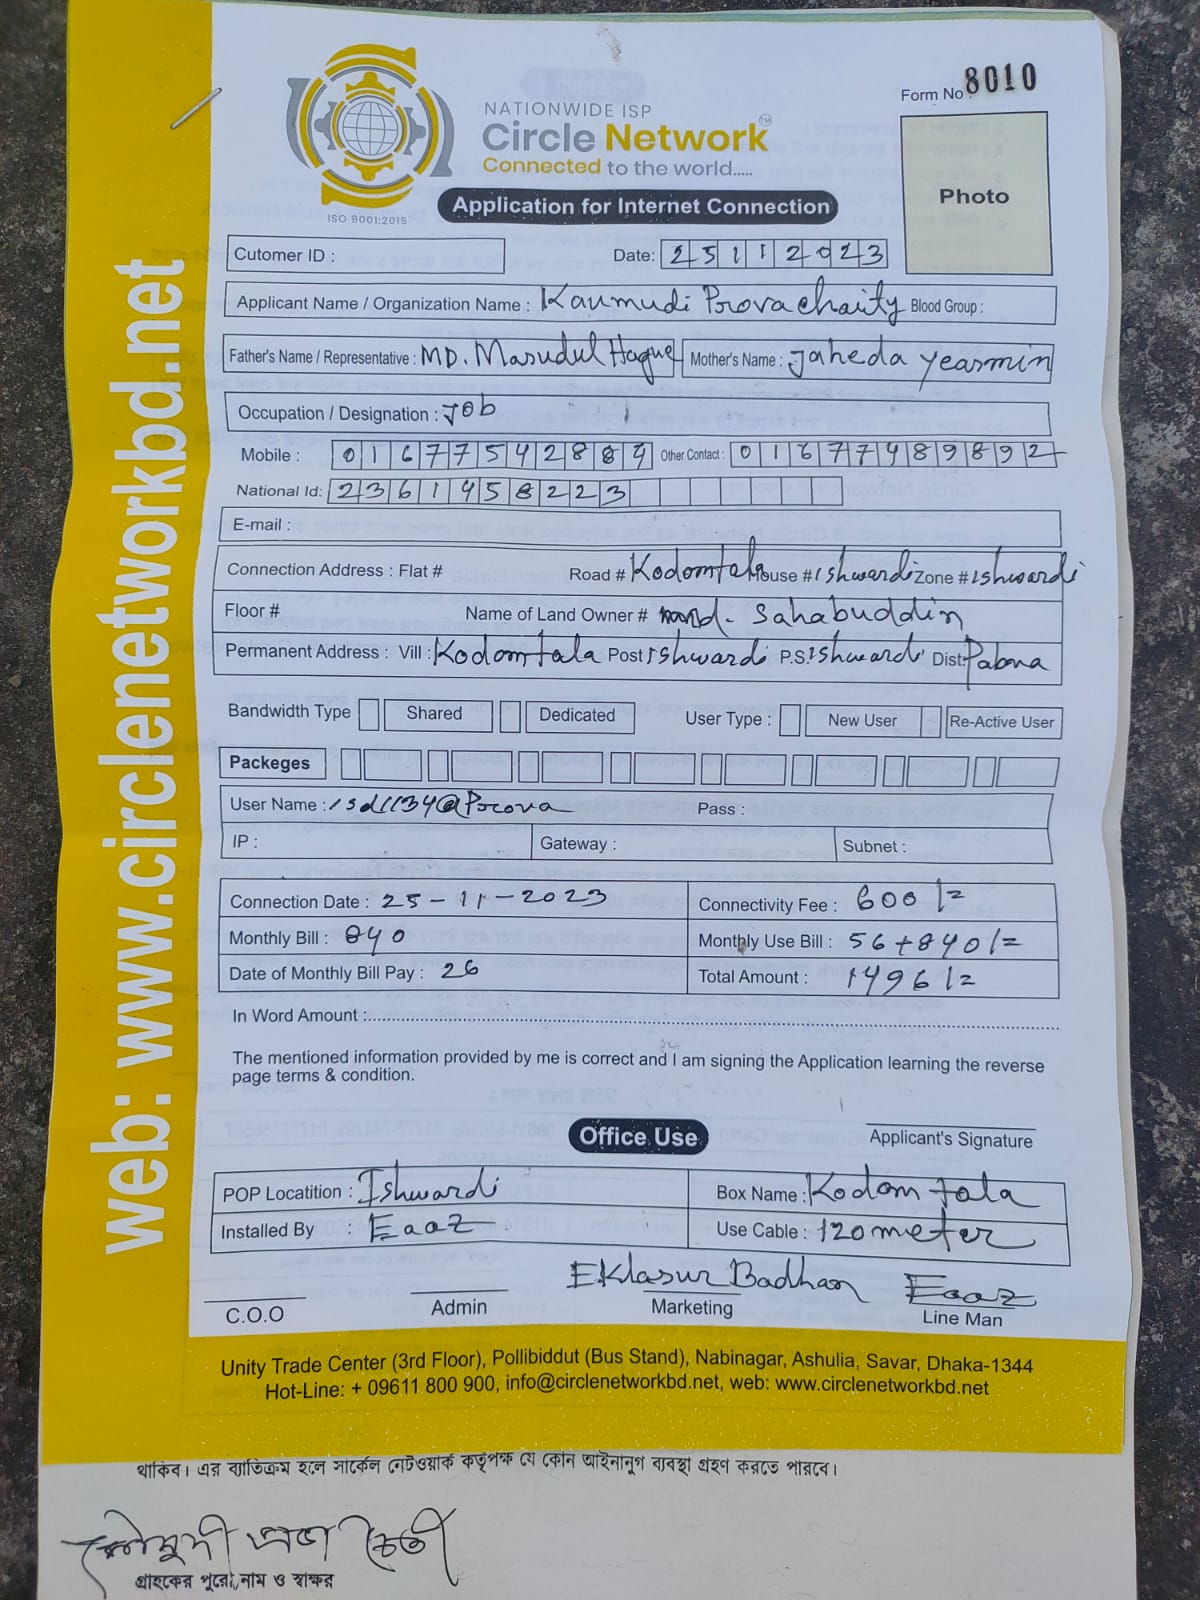 Form No. 8010
NATIONWIDE ISP
Circle Network™
Connected to the world.....
ISO 9001:2015
Application for Internet Connection
Photo
Cutomer ID :
Date: 25112023
Applicant Name / Organization Name : Kaumudi Prova chaity Blood Group :
Father's Name / Representative : MD. Masudul Haque Mother's Name : Jaheda Yearmin
Occupation / Designation : Job
Mobile : 01677542889 Other Contact : 01677489892
National Id: 2361458223
E-mail :
Connection Address : Flat # Road # Kodomtala House # Ishwardi Zone # Ishwardi
Floor # Name of Land Owner # md. Sahabuddin
Permanent Address : Vill : Kodomtala Post Ishwardi P.S. Ishwardi Dist: Pabna
Bandwidth Type Shared Dedicated User Type : New User Re-Active User
Packeges
User Name : isd1134@Prova Pass :
IP : Gateway : Subnet :
Connection Date : 25-11-2023 Connectivity Fee : 600/=
Monthly Bill : 840 Monthly Use Bill : 56+840/=
Date of Monthly Bill Pay : 26 Total Amount : 1496/=
In Word Amount :
The mentioned information provided by me is correct and I am signing the Application learning the reverse
page terms & condition.
Applicant's Signature
Office Use
POP Locatition : Ishwardi Box Name : Kodomtala
Installed By : Eaaz Use Cable : 120 meter
Eklasur Badhan Eaaz
C.O.O Admin Marketing Line Man
Unity Trade Center (3rd Floor), Pollibiddut (Bus Stand), Nabinagar, Ashulia, Savar, Dhaka-1344
Hot-Line: + 09611 800 900, info@circlenetworkbd.net, web: www.circlenetworkbd.net
web: www.circlenetworkbd.net
থাকিব। এর ব্যতিক্রম হলে সার্কেল নেটওয়ার্ক কর্তৃপক্ষ যে কোন আইনানুগ ব্যবস্থা গ্রহণ করতে পারবে।
কৌমুদী প্রভা চৈতী
গ্রাহকের পুরো নাম ও স্বাক্ষর